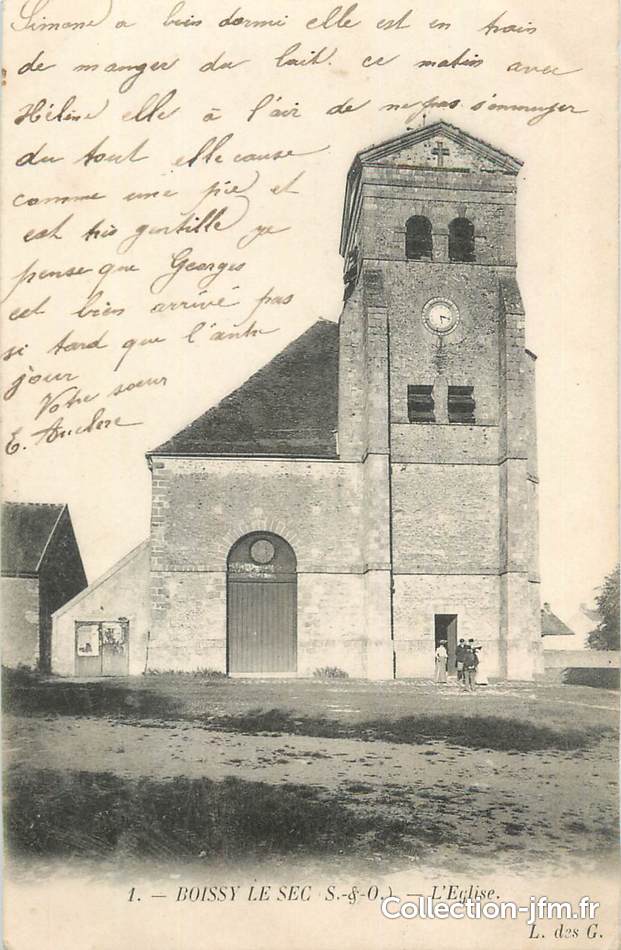 Simone a bien dormi elle est en train
de manger du lait. ce matin avec
Hélène elle à l'air de ne pas s'ennuyer
du tout elle cause
comme une pie et
est très gentille je
pense que Georges
est bien arrivé pas
si tard que l'autre
jour
Votre soeur
1. — BOISSY LE SEC (S.-&-O.) — L'Eglise.
Collection-jfm.fr
L. des G.